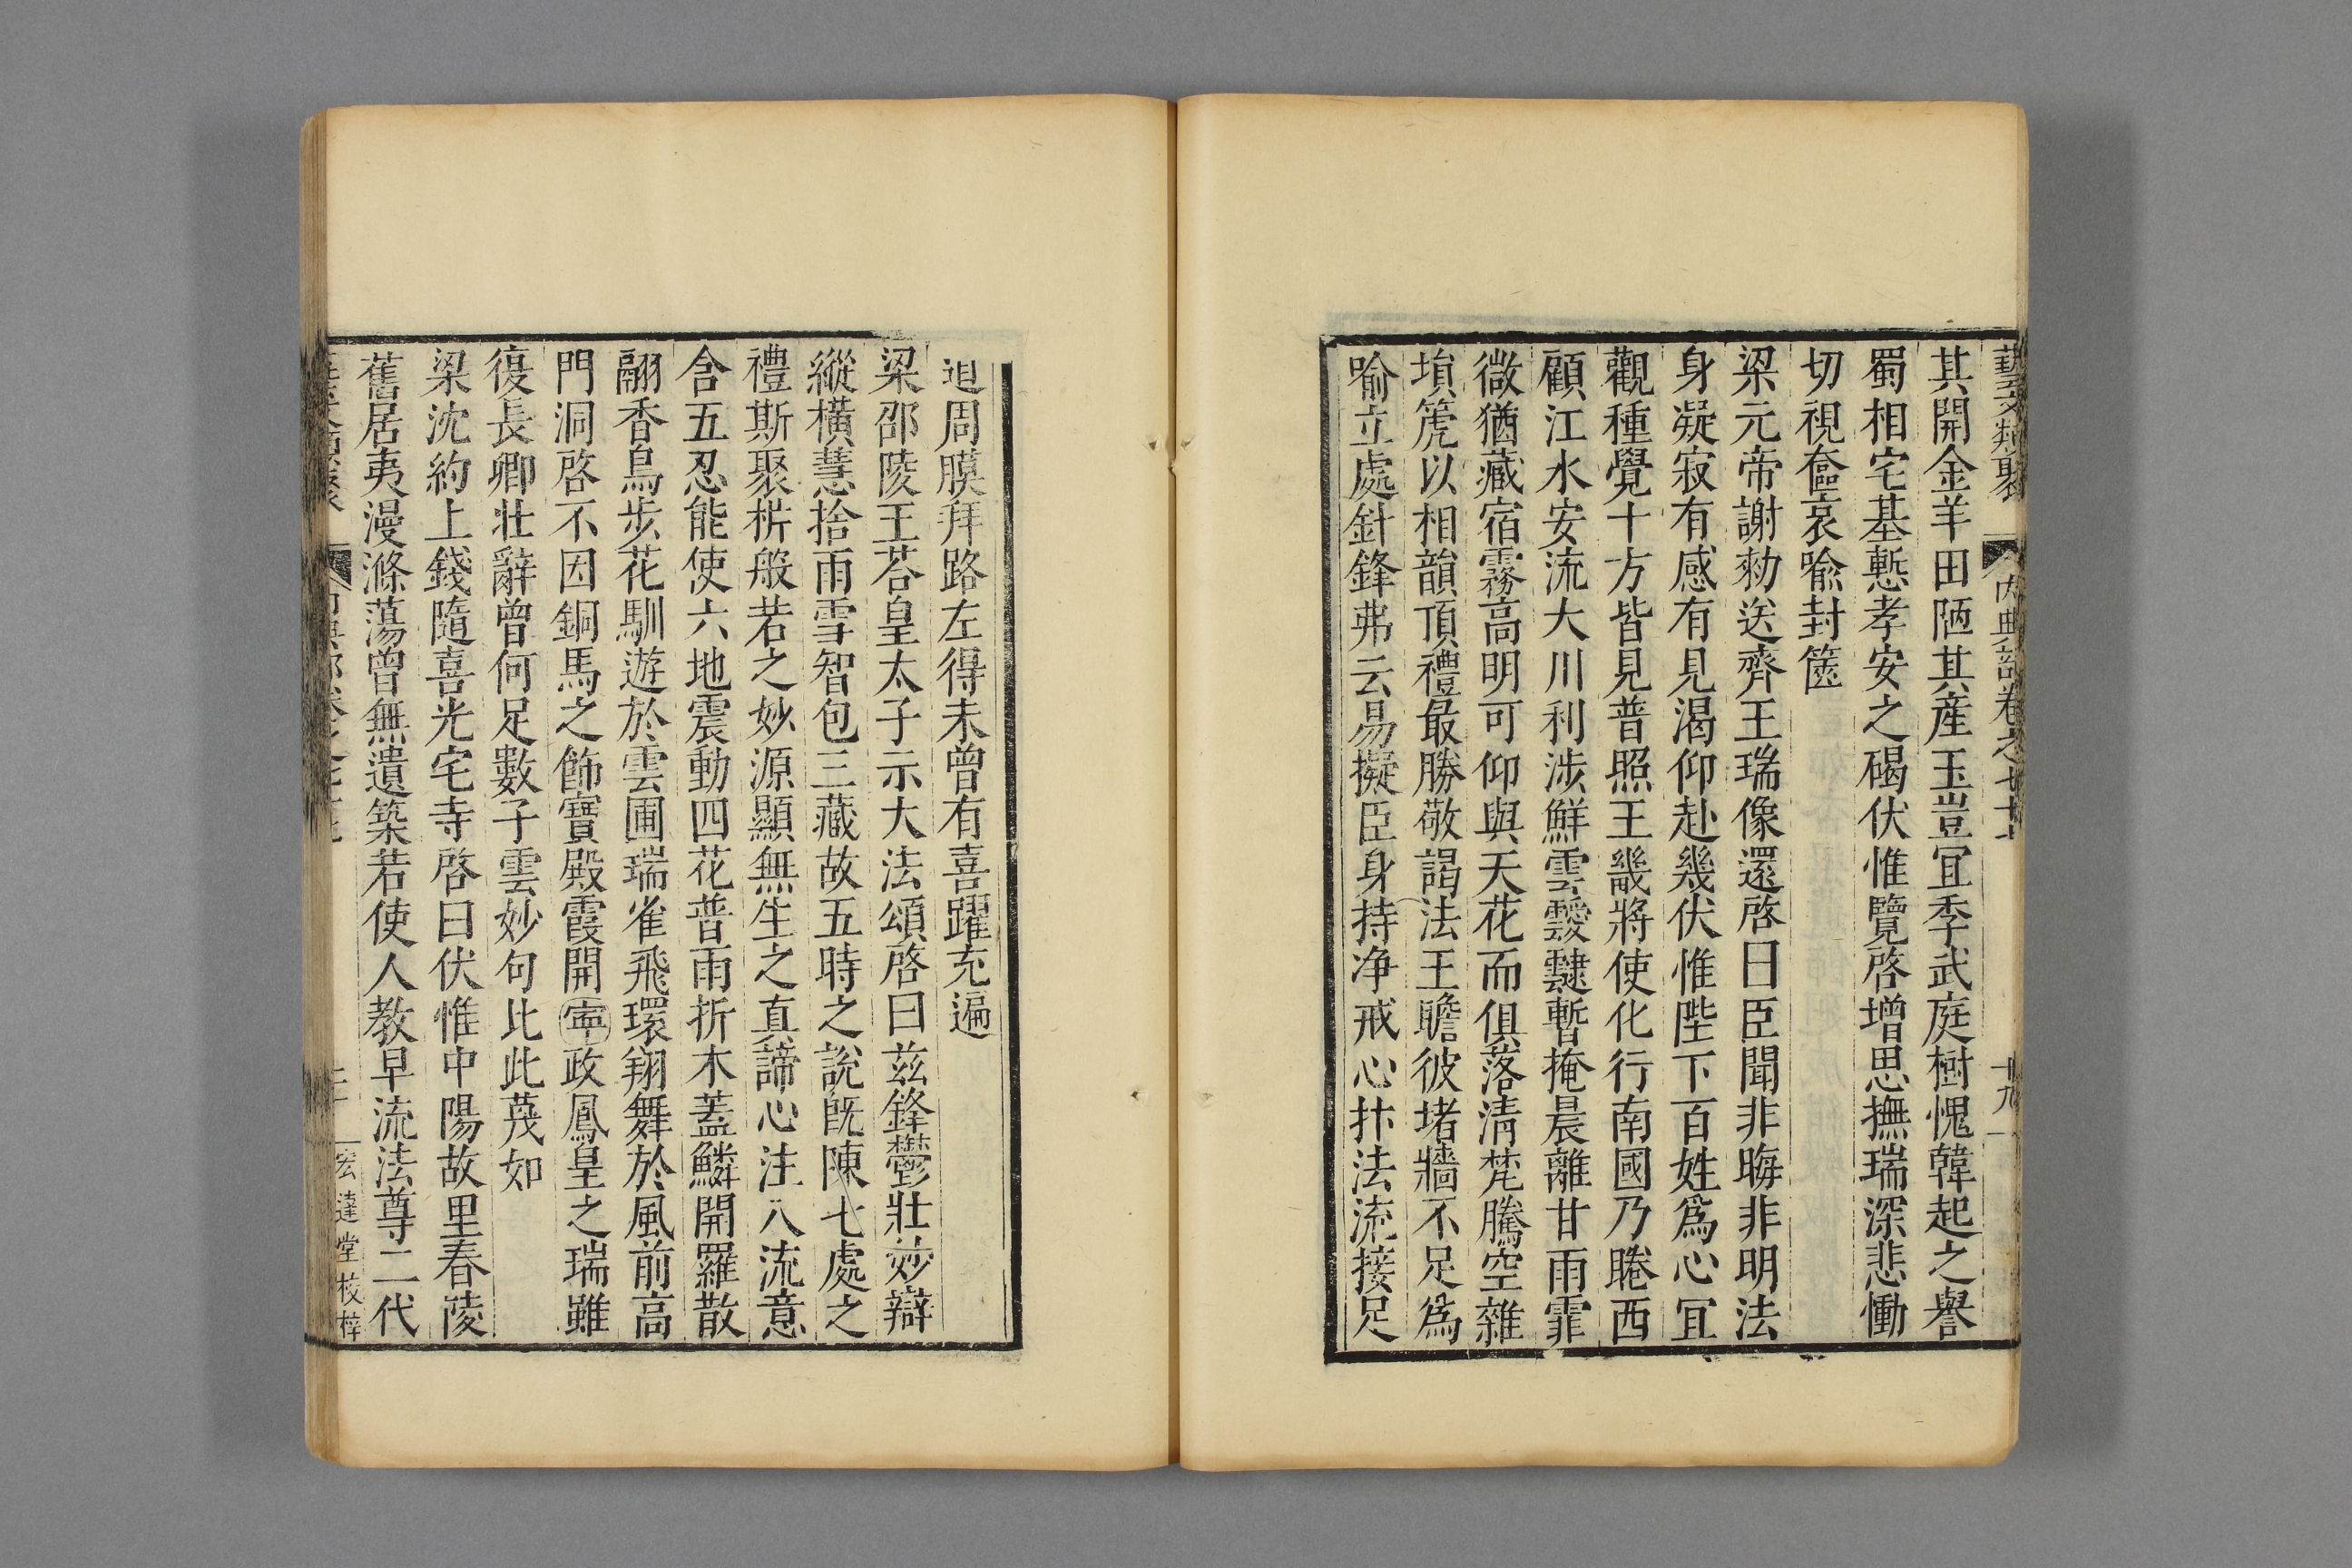 藝文類聚 內典部卷之七十七 十九
其開金羊田陋其産玉豈宜季武庭樹愧韓起之譽
蜀相宅基慙孝安之碣伏惟覽啓增思撫瑞深悲慟
切視奩哀喻封篋
梁元帝謝勑送齊王瑞像還啓曰臣聞非晦非明法
身凝寂有感有見渴仰赴幾伏惟陛下百姓爲心宜
觀種覺十方皆見普照王畿將使化行南國乃睠西
顧江水安流大川利涉鮮雲靉靆暫掩晨離甘雨霏
微猶藏宿霧高明可仰與天花而俱落清梵騰空雜
塤箎以相韻頂禮最勝敬謁法王瞻彼堵牆不足爲
喻立處針鋒弗云易擬臣身持净戒心抃法流接足
𨑳周膜拜路左得未曾有喜躍充遍
梁邵陵王荅皇太子示大法頌啓曰兹鋒鬱壯妙辯
縱橫慧拾雨雪智包三藏故五時之說旣陳七處之
禮斯聚析般若之妙源顯無生之真諦心注八流意
含五忍能使六地震動四花普雨折木蓋鱗開羅散
翮香鳥步花馴遊於雲圃瑞雀飛環翔舞於風前高
門洞啓不因銅馬之飾寶殿霞開寧政鳳皇之瑞雖
復長卿壯辭曾何足數子雲妙句比此蔑如
梁沈約上錢隨喜光宅寺啓曰伏惟中陽故里舂陵
舊居夷漫滌蕩曾無遺築若使人教早流法尊二代
宏達堂校梓